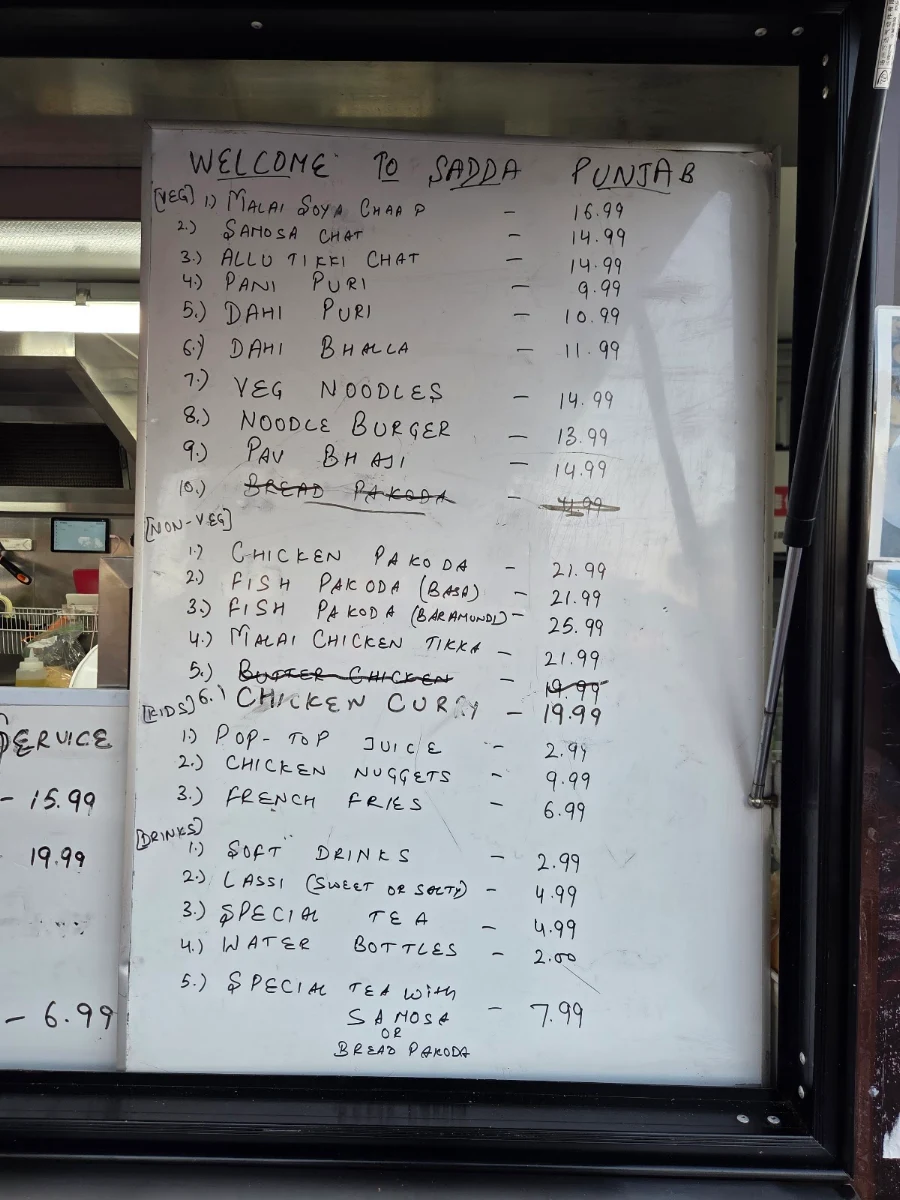 WELCOME TO SADDA PUNJAB
[VEG] 1.) MALAI SOYA CHAAP - 16.99
2.) SAMOSA CHAT - 14.99
3.) ALLU TIKKI CHAT - 14.99
4.) PANI PURI - 9.99
5.) DAHI PURI - 10.99
6.) DAHI BHALLA - 11.99
7.) VEG NOODLES - 14.99
8.) NOODLE BURGER - 13.99
9.) PAV BHAJI - 14.99
10.) BREAD PAKODA -
[NON-VEG]
1.) CHICKEN PAKODA - 21.99
2.) FISH PAKODA (BASA) - 21.99
3.) FISH PAKODA (BARAMUNDI) - 25.99
4.) MALAI CHICKEN TIKKA - 21.99
5.) BUTTER CHICKEN - 19.99
6.) CHICKEN CURRY - 19.99
[KIDS]
1.) POP-TOP JUICE - 2.99
2.) CHICKEN NUGGETS - 9.99
3.) FRENCH FRIES - 6.99
[DRINKS]
1.) SOFT DRINKS - 2.99
2.) LASSI (SWEET OR SALTY) - 4.99
3.) SPECIAL TEA - 4.99
4.) WATER BOTTLES - 2.00
5.) SPECIAL TEA WITH
SAMOSA - 7.99
OR
BREAD PAKODA
SERVICE
- 15.99
19.99
- 6.99